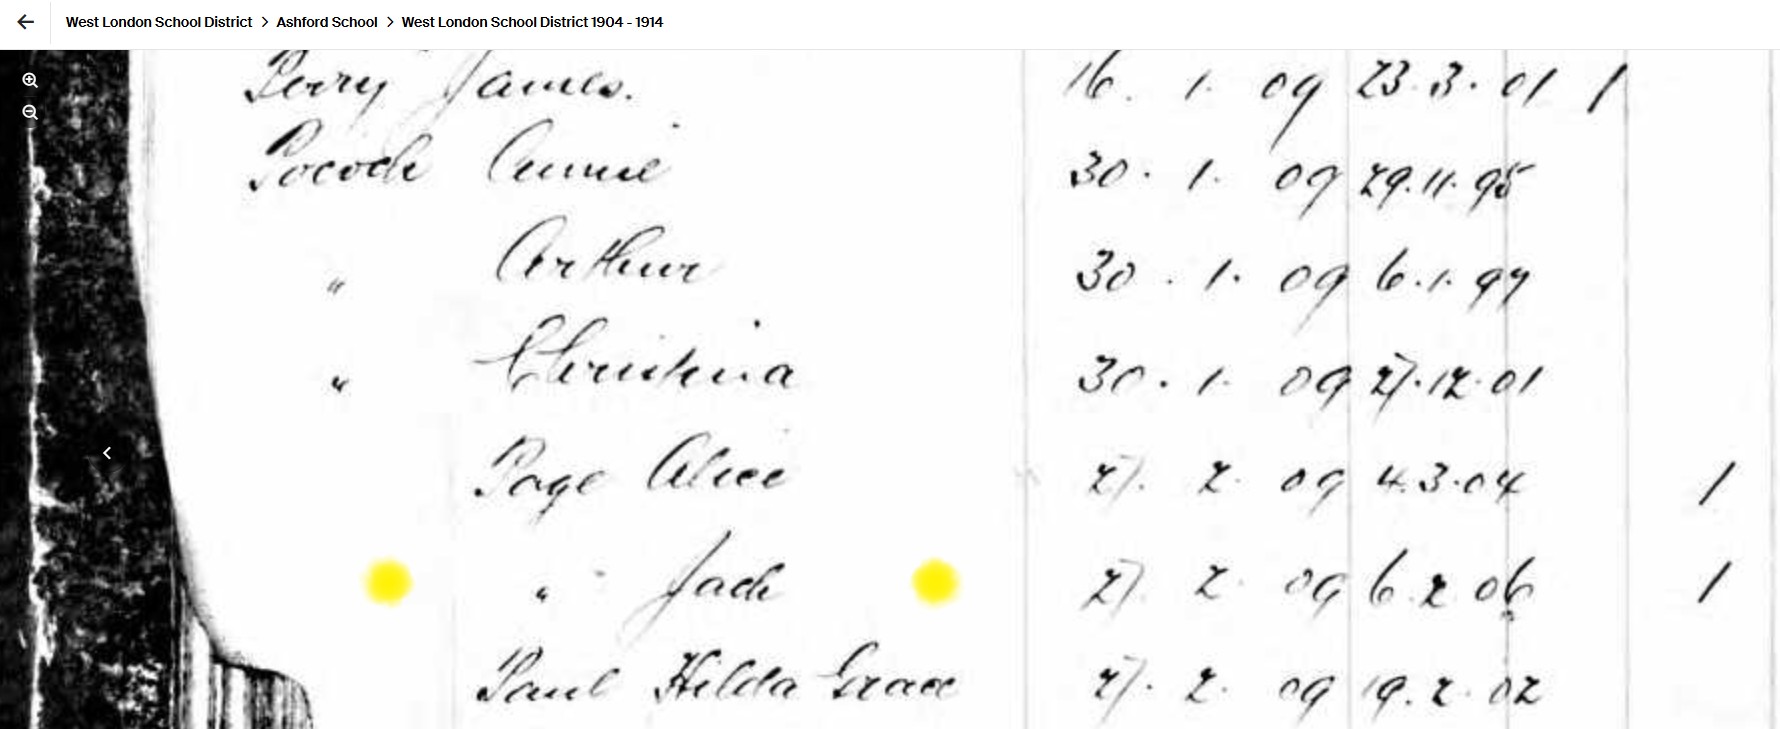 West London School District > Ashford School > West London School District 1904 - 1914
Perry James. 16. 1. 09 23.3.01 1
Pocock Annie 30. 1. 09 29.11.95
" Arthur 30. 1. 09 6.1.99
" Christina 30. 1. 09 27.12.01
Page Alice 27. 2. 09 4.3.04 1
" Jack 27. 2. 09 6.2.06 1
Paul Hilda Grace 27. 2. 09 19.2.02